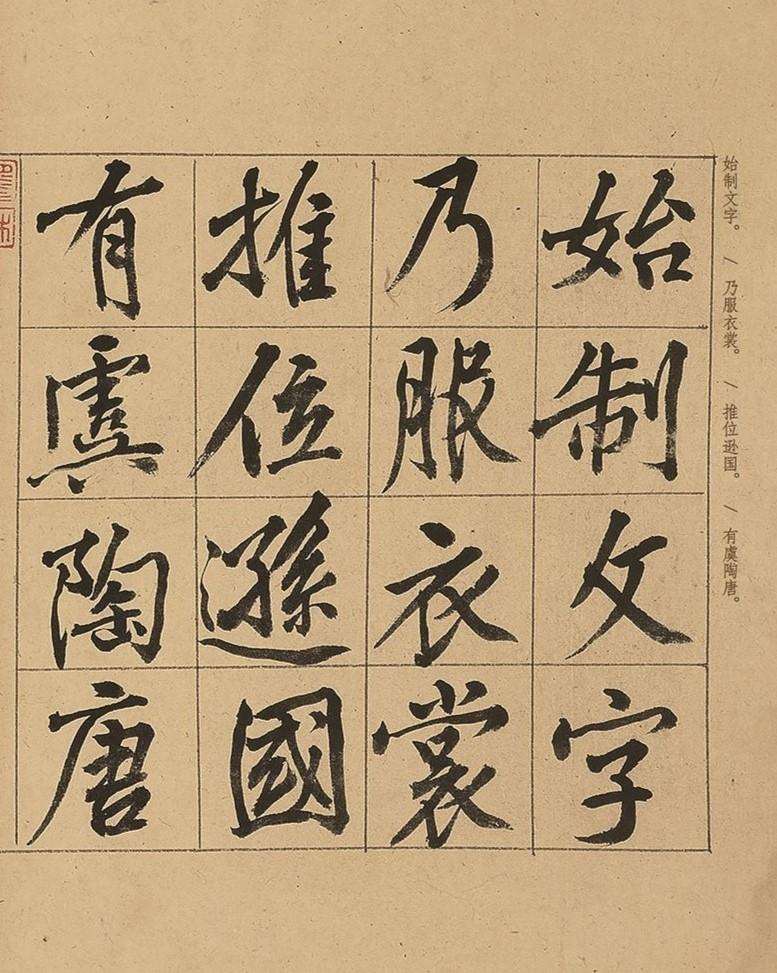 始制文字。 / 乃服衣裳。 / 推位逊国。 / 有虞陶唐。
始制文字
乃服衣裳
推位遜國
有虞陶唐